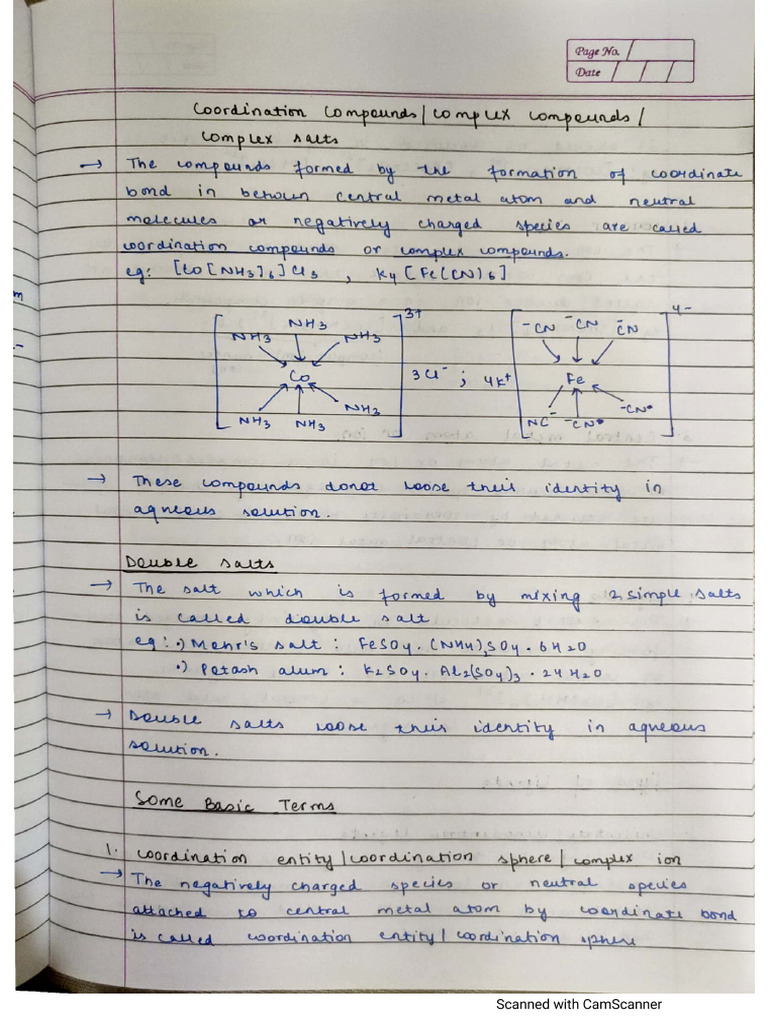 Page No.
Date
Coordination Compounds/complex compounds/
Complex salts
→ The compounds formed by the formation of coordinate
bond in between central metal atom and neutral
molecules or negatively charged species are called
coordination compounds or complex compounds.
eg: [Co[NH3]6]Cl3 , K4[Fe(CN)6]
NH3 NH3 NH3 3+
Co 3Cl⁻ ;
NH3 NH3 NH3
⁻CN ⁻CN ⁻CN 4-
4K⁺ Fe
NC⁻ ⁻CN ⁻CN
→ These compounds donot loose their identity in
aqneous solution.
Double salts
→ The salt which is formed by mixing 2 simple salts
is called double salt
eg: •) Mohr's salt : FeSO4. (NH4)2SO4 . 6H2O
•) Potash alum : K2SO4. Al2(SO4)3 . 24H2O
→ Double salts loose their identity in aqneous
solution.
Some Basic Terms
1. coordination entity/coordination sphere/complex ion
→ The negatively charged species or neutral species
attached to central metal atom by coordinate bond
is called coordination entity/coordination sphere
Scanned with CamScanner